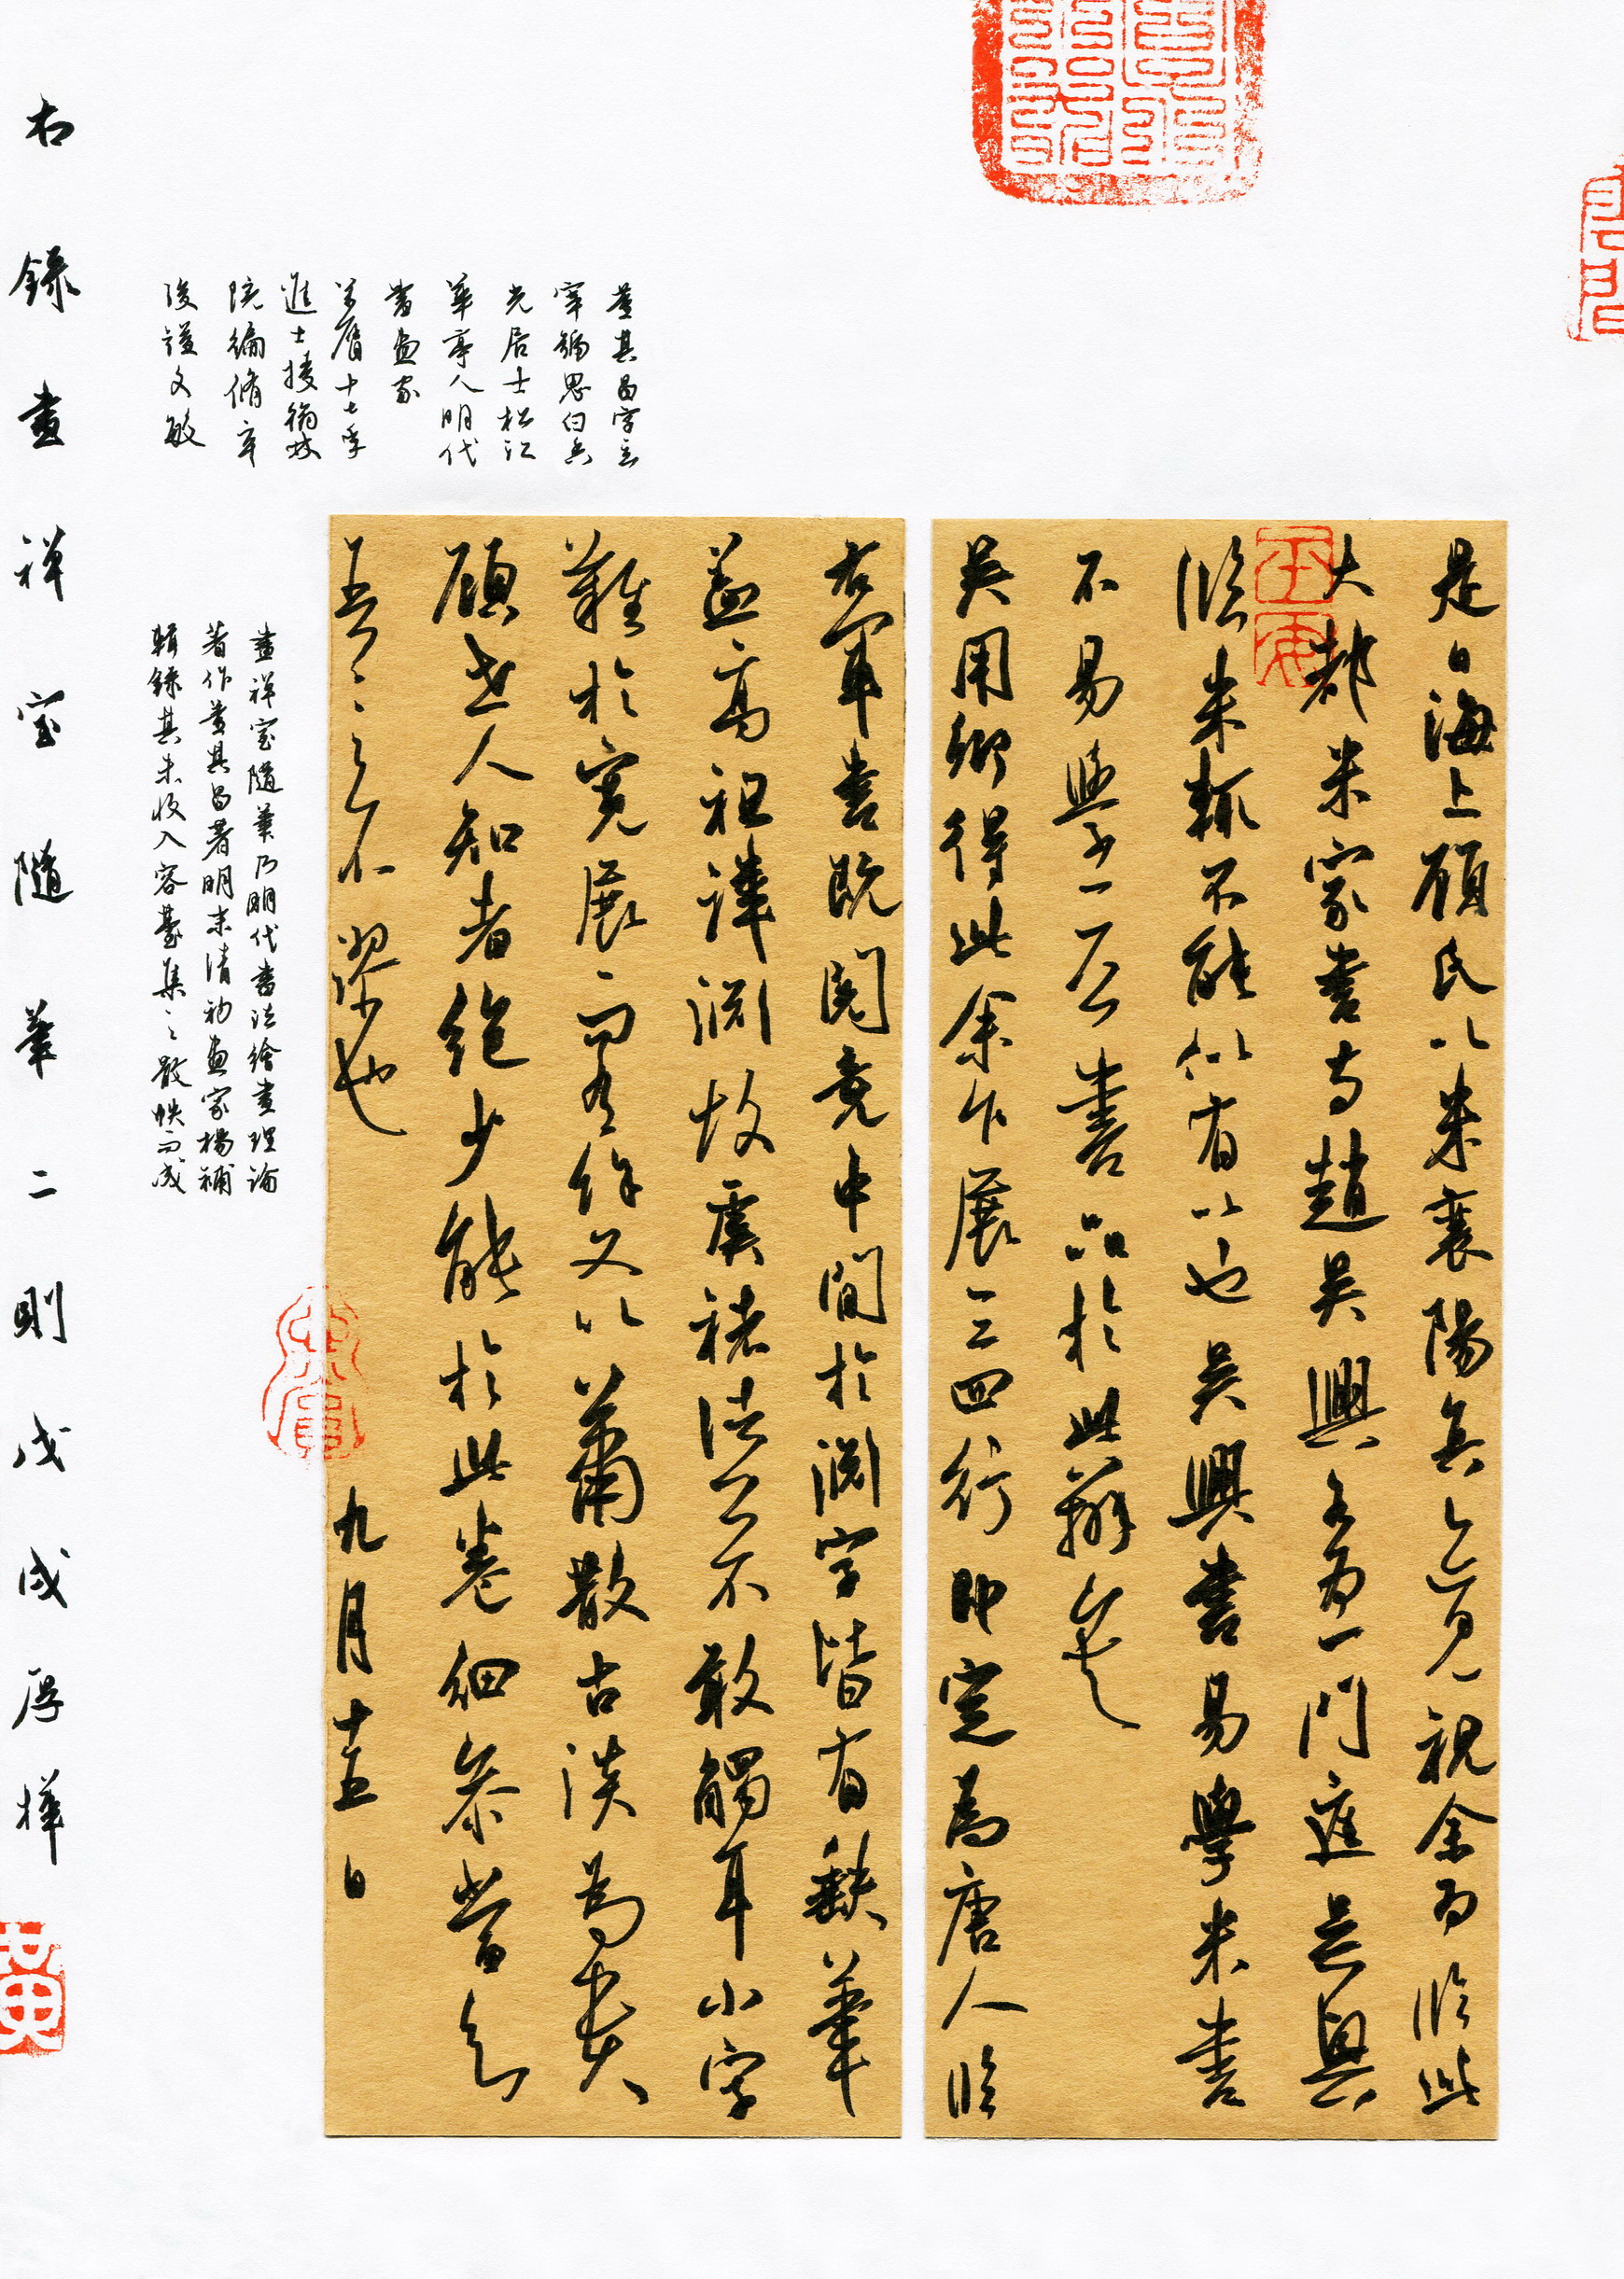 是日海上顧氏以米襄陽真迹見視余為臨此
大都米家書與趙吳興各為一門庭吳興
臨米輒不能似有以也吳興書易學米書
不易學二公書品於此辨矣
吳用卿得此余乍展三四行即定為唐人臨
右軍書既閱竟中間於淵字皆有缺筆
蓋高祖諱淵故虞褚諸公不敢觸耳小字
難於寬展而有餘又以蕭散古淡為貴
顧世人知者絕少能於此卷細參當知
吾言之不謬也 九月十五日
董其昌字玄
宰號思白香
光居士松江
華亭人明代
書畫家
萬曆十七年
進士授翰林
院編脩卒
後諡文敏
畫禪室隨筆乃明代書法繪畫理論
著作董其昌著明末清初畫家楊補
輯錄其未收入容臺集之散帙而成
右錄畫禪室隨筆二則戊戌厚樺